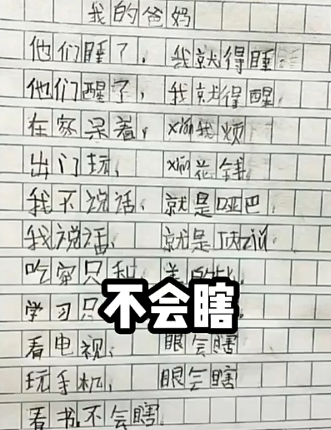 我的爸妈
他们睡了，我就得睡
他们醒了，我就得醒
在家呆着，xián我烦
出门玩，xián花钱
我不说话，就是哑巴
我说话，就是
吃穿只
学习只
不会瞎
看电视，眼会瞎
玩手机，眼会瞎
看书不会瞎